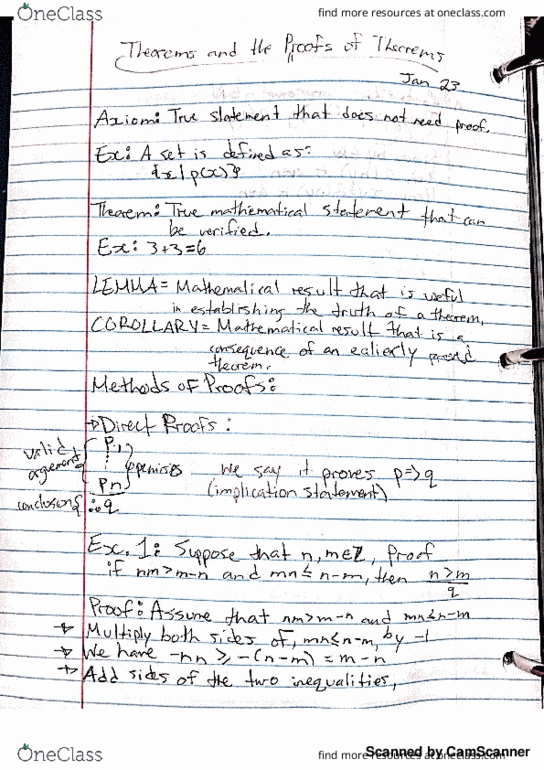 OneClass
find more resources at oneclass.com
Theorems and the Proofs of Theorems
Jan 23
Axiom: True statement that does not need proof.
Ex: A set is defined as:
{x|p(x)}
Theorem: True mathematical statement that can
be verified.
Ex: 3+3=6
LEMMA = Mathematical result that is useful
in establishing the truth of a theorem.
COROLLARY = Mathematical result that is a
consequence of an ealierly proved
theorem.
Methods of Proofs:
→Direct Proofs:
valid
argument
P1,
⋮
Pn
premises
We say it proves p=>q
(implication statement)
conclusion{ ∴q
Ex. 1: Suppose that n, m∈Z, Proof
if nm>m-n and mn≤n-m, then n>m
q
Proof: Assume that nm>m-n and mn≤n-m
→ Multiply both sides of, mn≤n-m, by -1
→ We have -mn ≥ -(n-m) = m-n
→ Add sides of the two inequalities,
OneClass
find more resources at oneclass.com
Scanned by CamScanner